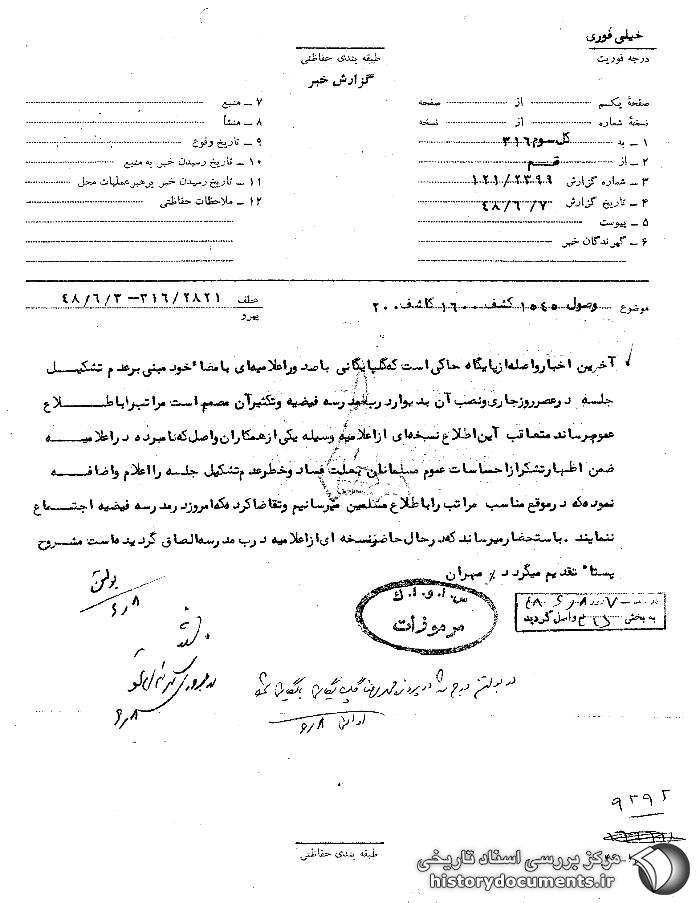 خیلی فوری
درجه فوریت
طبقه بندی حفاظتی
گزارش خبر
صفحهٔ یکم از صفحه
نسخهٔ شماره از نسخه
۱ – به کل سوم ۳۱۶
۲ – از قم
۳ – شماره گزارش ۱۲۱/۲۳۹۹
۴ – تاریخ گزارش ۴۸/۶/۷
۵ – پیوست
۶ – گیرندگان خبر
۷ – منبع
۸ – منشأ
۹ – تاریخ وقوع
۱۰ – تاریخ رسیدن خبر به منبع
۱۱ – تاریخ رسیدن خبر برهبر عملیات محل
۱۲ – ملاحظات حفاظتی
موضوع وصول ۱۵۴۵ کشف ۱۶۰۰ کاشف ۲۰۰
عطف ۳۱۶/۲۸۲۱ – ۴۸/۶/۳
پیرو
آخرین اخبار واصله از پایگاه حاکی است که گلپایگانی با صدور اعلامیه‌ای با مضاء خود مبنی بر عدم تشکیل
جلسه در عصر روز جاری و نصب آن بدیوار درب مدرسه فیضیه و تکثیر آن مصمم است مراتب را باطلاع
عموم برساند متعاقب این اطلاع نسخه‌ای از اعلامیه وسیله یکی از همکاران واصل که نامبرده در اعلامیه
ضمن اظهار تشکر از احساسات عموم مسلمانان بعلت فساد و خطر عدم تشکیل جلسه را اعلام و اضافه
نموده که در موقع مناسب مراتب را باطلاع مسلمین میرسانیم و تقاضا کرده که امروز در مدرسه فیضیه اجتماع
ننمایند . باستحضار میرساند که در حال حاضر نسخه ای از اعلامیه درب مدرسه الصاق گردیده است مشروح
پستاً تقدیم میگردد٪ مهران
س . ا . و . ا . ک
مرموزات
به بخش واصل گردید
بولتن
۶/۸
۶/۸
۶/۸
۹۲۹۲
طبقه بندی حفاظتی
مرکز بررسی اسناد تاریخی
historydocuments.ir